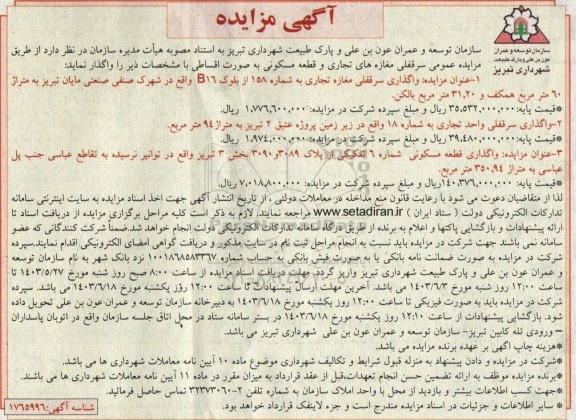 آگهی مزایده
سازمان توسعه و عمران
عون بن علی و پارک طبیعت
شهرداری تبریز
سازمان توسعه و عمران عون بن علی و پارک طبیعت شهرداری تبریز به استناد مصوبه هیأت مدیره سازمان در نظر دارد از طریق
مزایده عمومی سرقفلی مغازه های تجاری و قطعه مسکونی به صورت اقساطی با مشخصات ذیر را واگذار نماید:
۱-عنوان مزایده: واگذاری سرقفلی مغازه تجاری به شماره ۱۵۸ از بلوک B۱۶ واقع در شهرک صنفی صنعتی مایان تبریز به متراژ
۶۰ متر مربع همکف و ۳۱,۲۰ متر مربع بالکن.
*قیمت پایه:۳۵,۵۳۲,۰۰۰,۰۰۰ ریال و مبلغ سپرده شرکت در مزایده: ۱,۷۷۶,۶۰۰,۰۰۰ ریال.
۲-واگذاری سرقفلی واحد تجاری به شماره ۱۸ واقع در زیر زمین پروژه عتیق ۲ تبریز به متراژ ۹۴ متر مربع.
*قیمت پایه: ۳۹,۴۸۰,۰۰۰,۰۰۰ ریال و مبلغ سپرده شرکت در مزایده: ۱,۹۷۴,۰۰۰,۰۰۰ ریال.
۳-عنوان مزایده: واگذاری قطعه مسکونی شماره ۶ تفکیکی از پلاک ۳۰۸۹و۳۰۹۰ بخش ۳ تبریز واقع در توانیر نرسیده به تقاطع عباسی جنب پل
عباسی به متراژ ۳۵۰,۹۴ متر مربع.
*قیمت پایه: ۱۴۰,۳۷۶,۰۰۰,۰۰۰ریال و مبلغ سپرده شرکت در مزایده: ۷,۰۱۸,۸۰۰,۰۰۰ ریال.
لذا از متقاضیان دعوت می شود با رعایت قانون منع مداخله در معاملات دولتی ، از تاریخ انتشار آگهی جهت اخذ اسناد مزایده به سایت اینترنتی سامانه
تدارکات الکترونیکی دولت ( ستاد ایران ) www.setadiran.ir مراجعه نمایند. لازم به ذکر است کلیه مراحل برگزاری مزایده از دریافت اسناد تا
ارائه پیشنهادات و بازگشایی پاکتها و اعلام به برنده از طریق درگاه سامانه تدارکات الکترونیکی دولت انجام خواهد شد.ضمناً شرکت کنندگانی که عضو
سامانه نمی باشند جهت شرکت در مزایده باید نسبت به انجام مراحل ثبت نام در سایت مذکور و دریافت گواهی امضای الکترونیکی اقدام نمایند.سپرده
شرکت در مزایده به صورت ضمانت نامه بانکی یا به صورت فیش بانکی به حساب شماره ۱۰۰۱۸۶۸۵۸۳۳۶۷ نزد بانک شهر به نام سازمان توسعه
و عمران عون بن علی و پارک طبیعت شهرداری تبریز واریز گردد. مهلت دریافت اسناد مزایده از ساعت ۸:۰۰ صبح روز شنبه مورخ ۱۴۰۳/۵/۲۷ تا
ساعت ۱۲:۰۰ روز شنبه مورخ ۱۴۰۳/۶/۳ می باشد. آخرین مهلت ارسال پیشنهادات تا ساعت ۱۲:۰۰ روز یکشنبه مورخ ۱۴۰۳/۶/۱۸ می باشد. سپرده
شرکت در مزایده باید به صورت فیزیکی تا ساعت ۱۲:۰۰ روز یکشنبه مورخ ۱۴۰۳/۶/۱۸ به دبیرخانه سازمان توسعه و عمران عون بن علی تحویل داده
شود. بازگشایی پیشنهادات از ساعت ۱۲:۱۰ روز یکشنبه مورخ ۱۴۰۳/۶/۱۸ در بستر سامانه ستاد در محل اتاق جلسه سازمان واقع در اتوبان پاسداران
– ورودی تله کابین تبریز- سازمان توسعه و عمران عون بن علی شهرداری تبریز می باشد.
*هزینه چاپ آگهی بر عهده برنده مزایده می باشد.
*شرکت در مزایده و دادن پیشنهاد به منزله قبول شرایط و تکالیف شهرداری موضوع ماده ۱۰ آیین نامه معاملات شهرداری ها می باشد.
*برنده مزایده موظف به ارائه تضمین حسن انجام تعهدات،قبل از عقد قرارداد به میزان مقرر در ماده ۱۱ آیین نامه معاملات شهرداری ها می باشد.
*جهت کسب اطلاعات بیشتر و بازدید از محل با واحد املاک سازمان به شماره تلفن ۲-۳۲۳۷۳۰۶۰ تماس حاصل فرمائید.
*سایر اطلاعات و جزئیات در اسناد مزایده مندرج است و جزء لاینفک قرارداد خواهد بود.
شناسه آگهی:۱۷۶۵۹۹۶